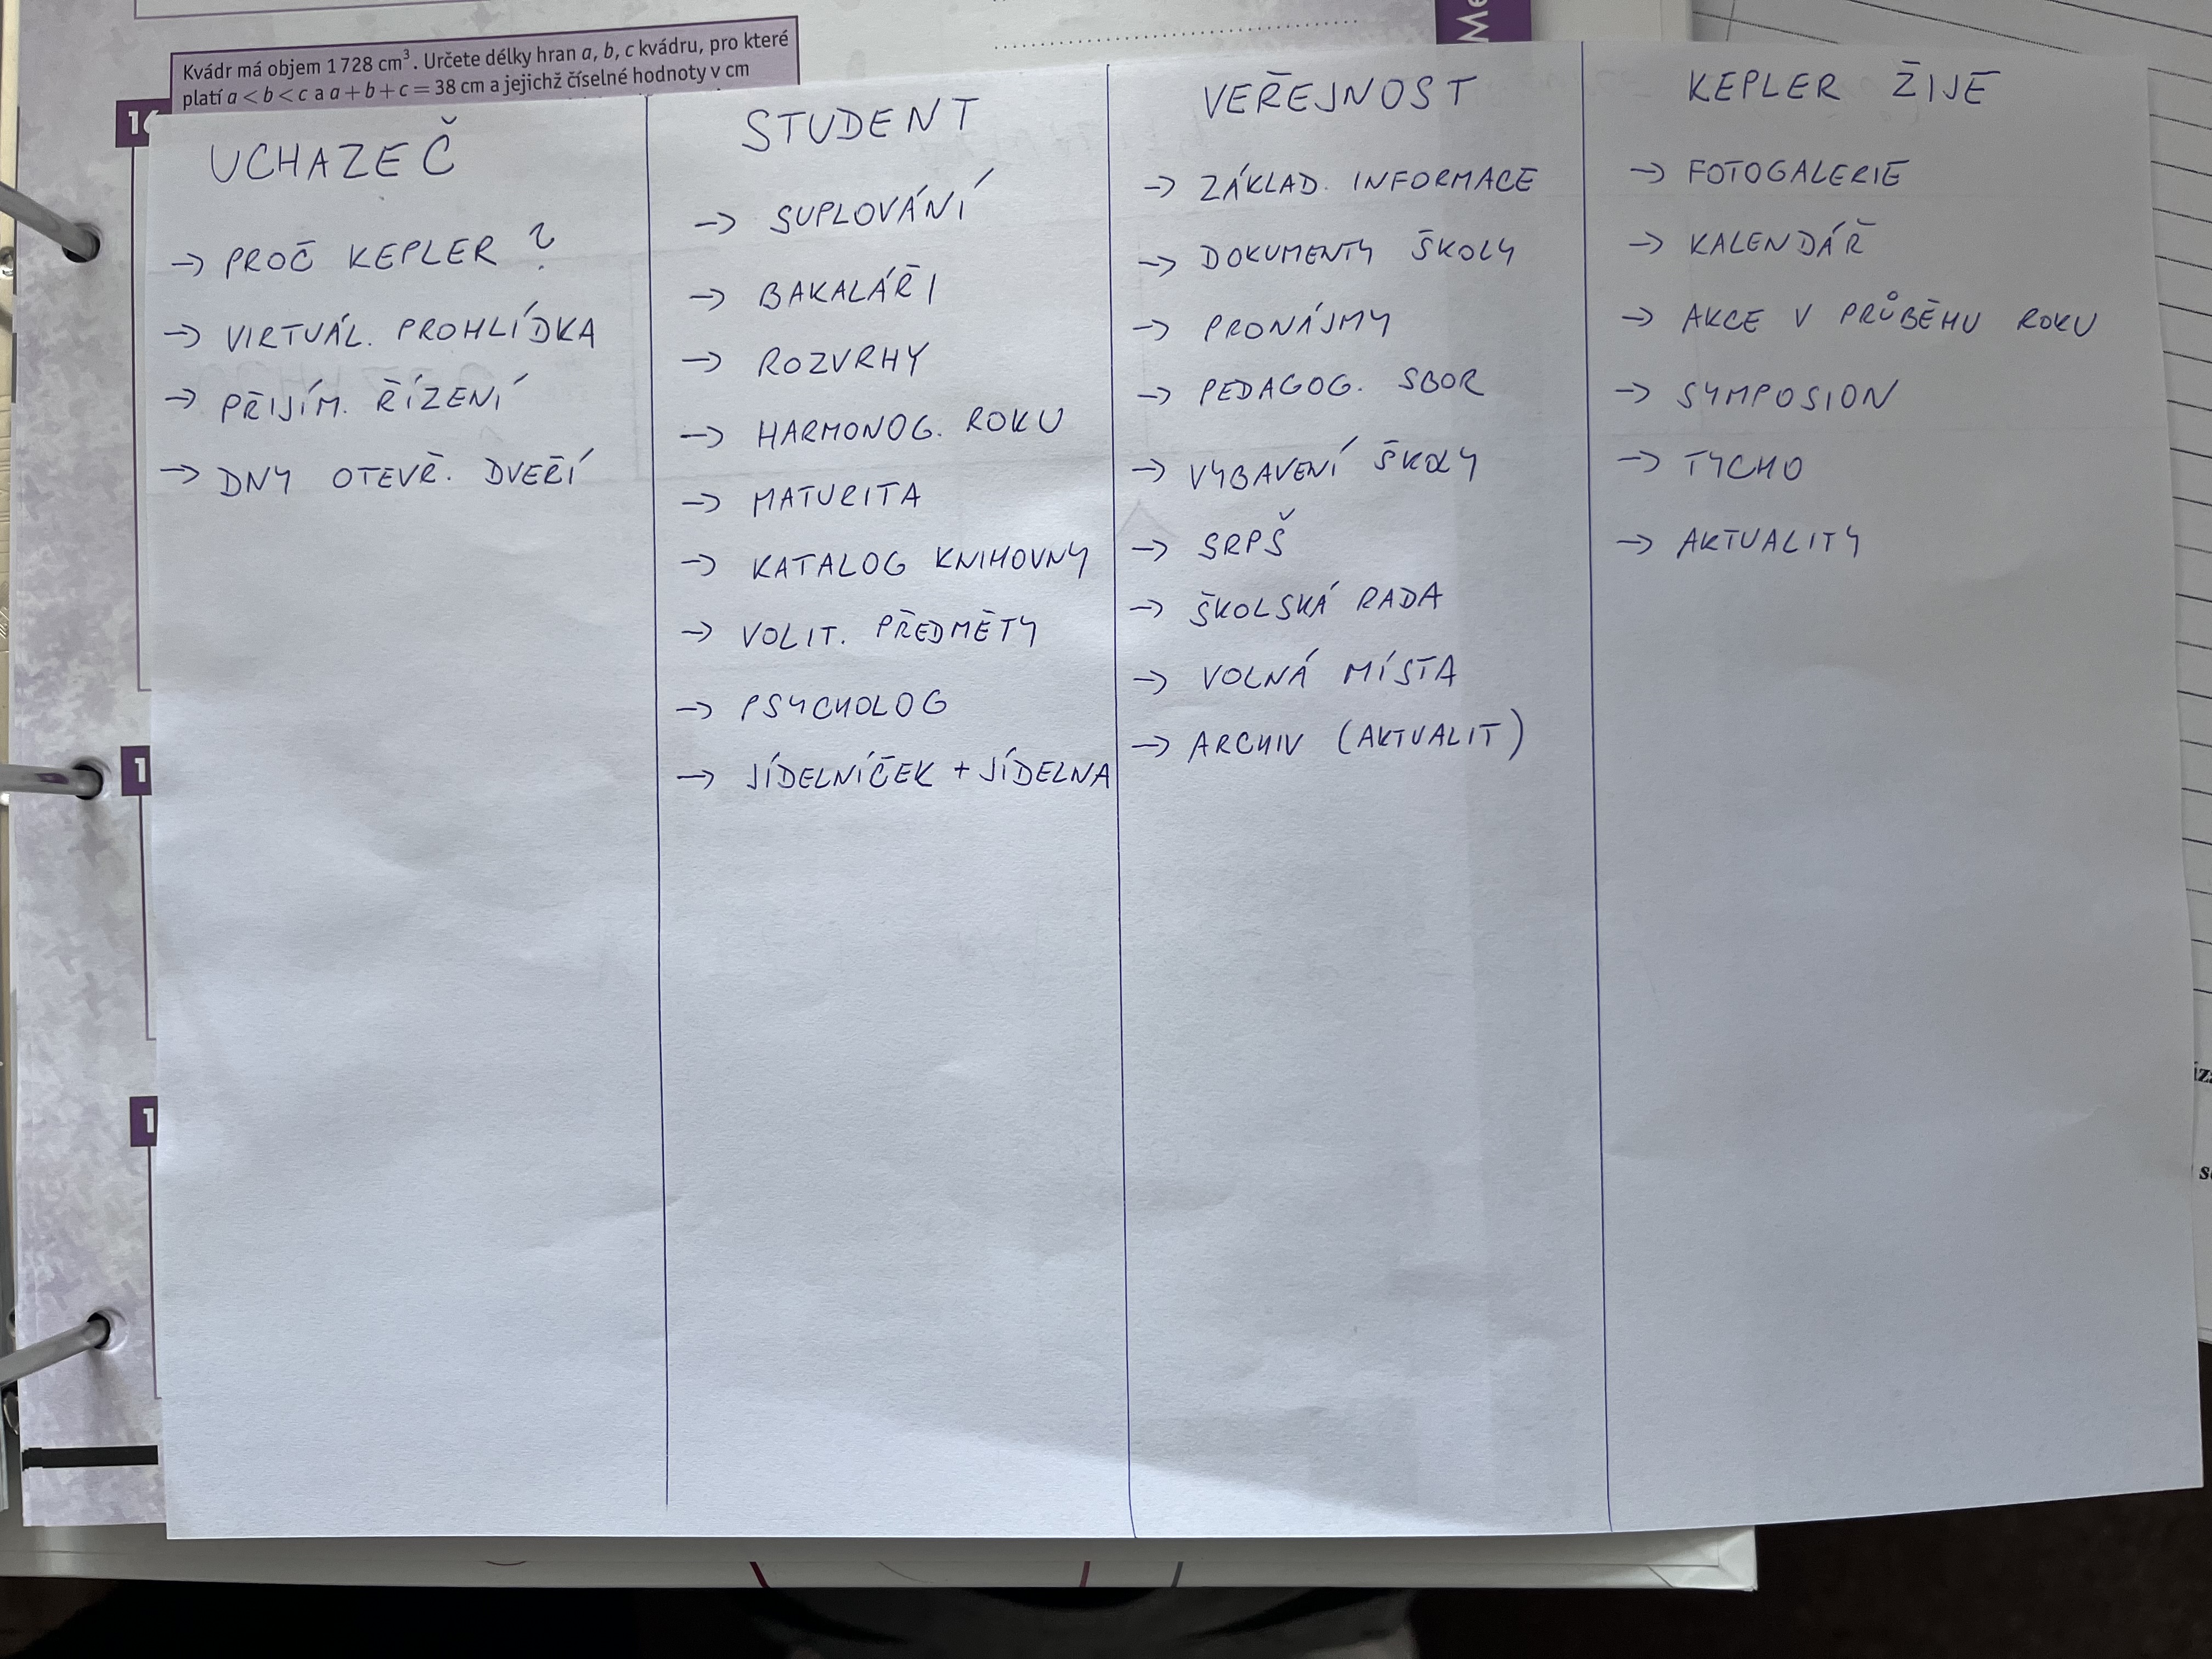 Kvádr má objem 1 728 cm³. Určete délky hran a, b, c kvádru, pro které
platí a < b < c a a + b + c = 38 cm a jejichž číselné hodnoty v cm
UCHAZEČ
→ PROČ KEPLER ?
→ VIRTUÁL. PROHLÍDKA
→ PŘIJÍM. ŘÍZENÍ
→ DNY OTEVŘ. DVEŘÍ
STUDENT
→ SUPLOVÁNÍ
→ BAKALÁŘI
→ ROZVRHY
→ HARMONOG. ROKU
→ MATURITA
→ KATALOG KNIHOVNY
→ VOLIT. PŘEDMĚTY
→ PSYCHOLOG
→ JÍDELNÍČEK + JÍDELNA
VEŘEJNOST
→ ZÁKLAD. INFORMACE
→ DOKUMENTY ŠKOLY
→ PRONÁJMY
→ PEDAGOG. SBOR
→ VYBAVENÍ ŠKOLY
→ SRPŠ
→ ŠKOLSKÁ RADA
→ VOLNÁ MÍSTA
→ ARCHIV (AKTUALIT)
KEPLER ŽIJE
→ FOTOGALERIE
→ KALENDÁŘ
→ AKCE V PRŮBĚHU ROKU
→ SYMPOSION
→ TYCHO
→ AKTUALITY